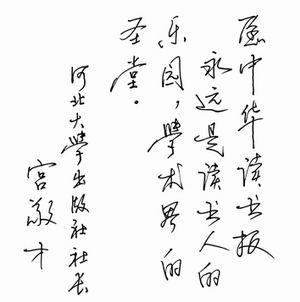 愿中华读书报
永远是读书人的
乐园，學术界的
圣堂。
河北大學出版社社长
宫敬才